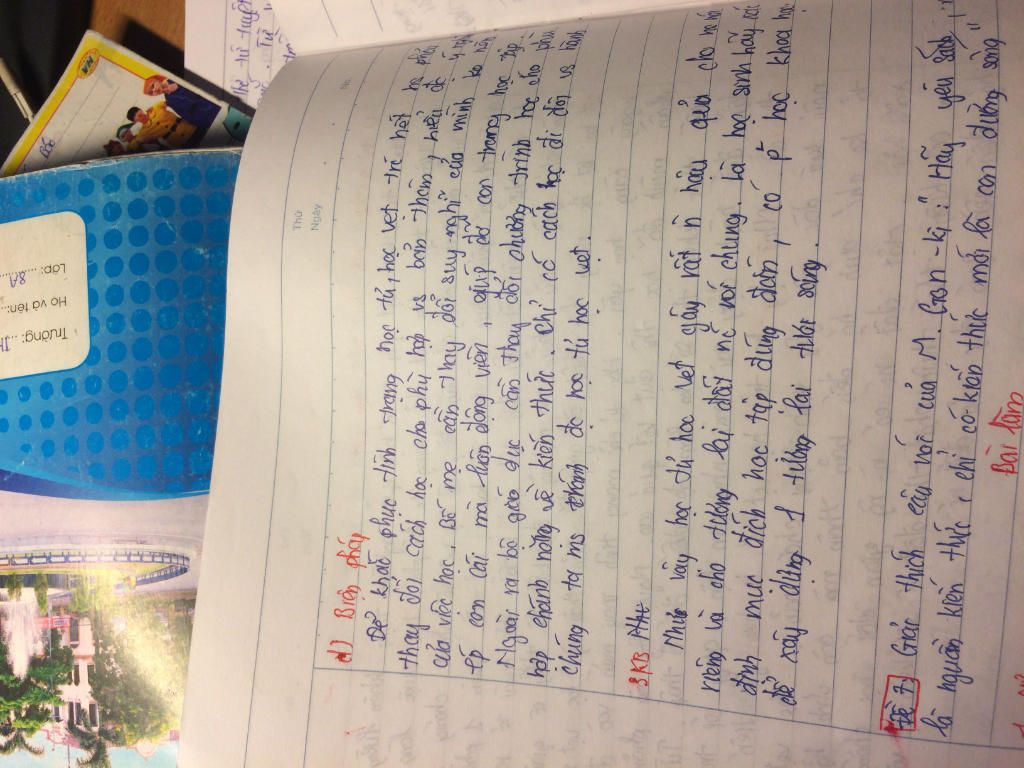 Thứ
Ngày
d) Biện pháp
Để khắc phục tình trạng học tủ, học vẹt trc hết hs phải
thay đổi cách học cho phù hợp vs bản thân, hiểu đc ý nghĩ
của việc học. Bố mẹ cần thay đổi suy nghĩ của mình ko nên
ép con cái mà luôn động viên, giúp đỡ con trong học tập.
Ngoài ra bộ giáo dục cần thay đổi chương trình học cho phù
hợp chánh nặng về kiến thức. Chỉ có cách học đi đôi vs hành
chúng ta ms tránh đc học tủ học vẹt.
3 KB
Như vậy học tủ học vẹt gây rất n hậu quả cho mỗi
và cho tương lai đất nc nói chung. Là học sinh hãy xác
định mục đích học tập đúng đắn, có p² học khoa học
để xây dựng 1 tương lai tươi sáng.
Đề 7. Giải thích câu nói của M. Gor-ki: "Hãy yêu sách, nó
là nguồn kiến thức, chỉ có kiến thức mới là con đường sống"
Bài làm
Trường:
Họ và tên:
Lớp: 8A